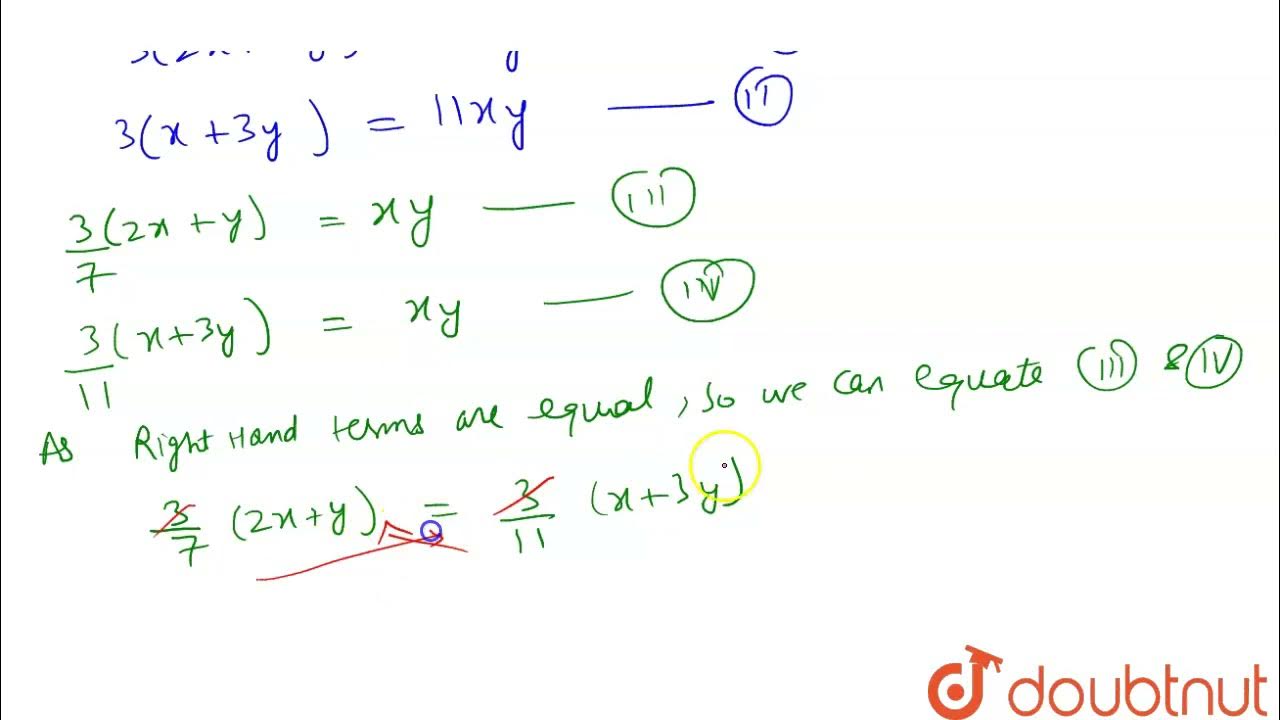 3(x + 3y) = 11xy —— II
3/7 (2x + y) = xy —— III
3/11 (x + 3y) = xy —— IV
As Right Hand terms are equal, so we can equate III & IV
3/7 (2x + y) = 3/11 (x + 3y)
doubtnut